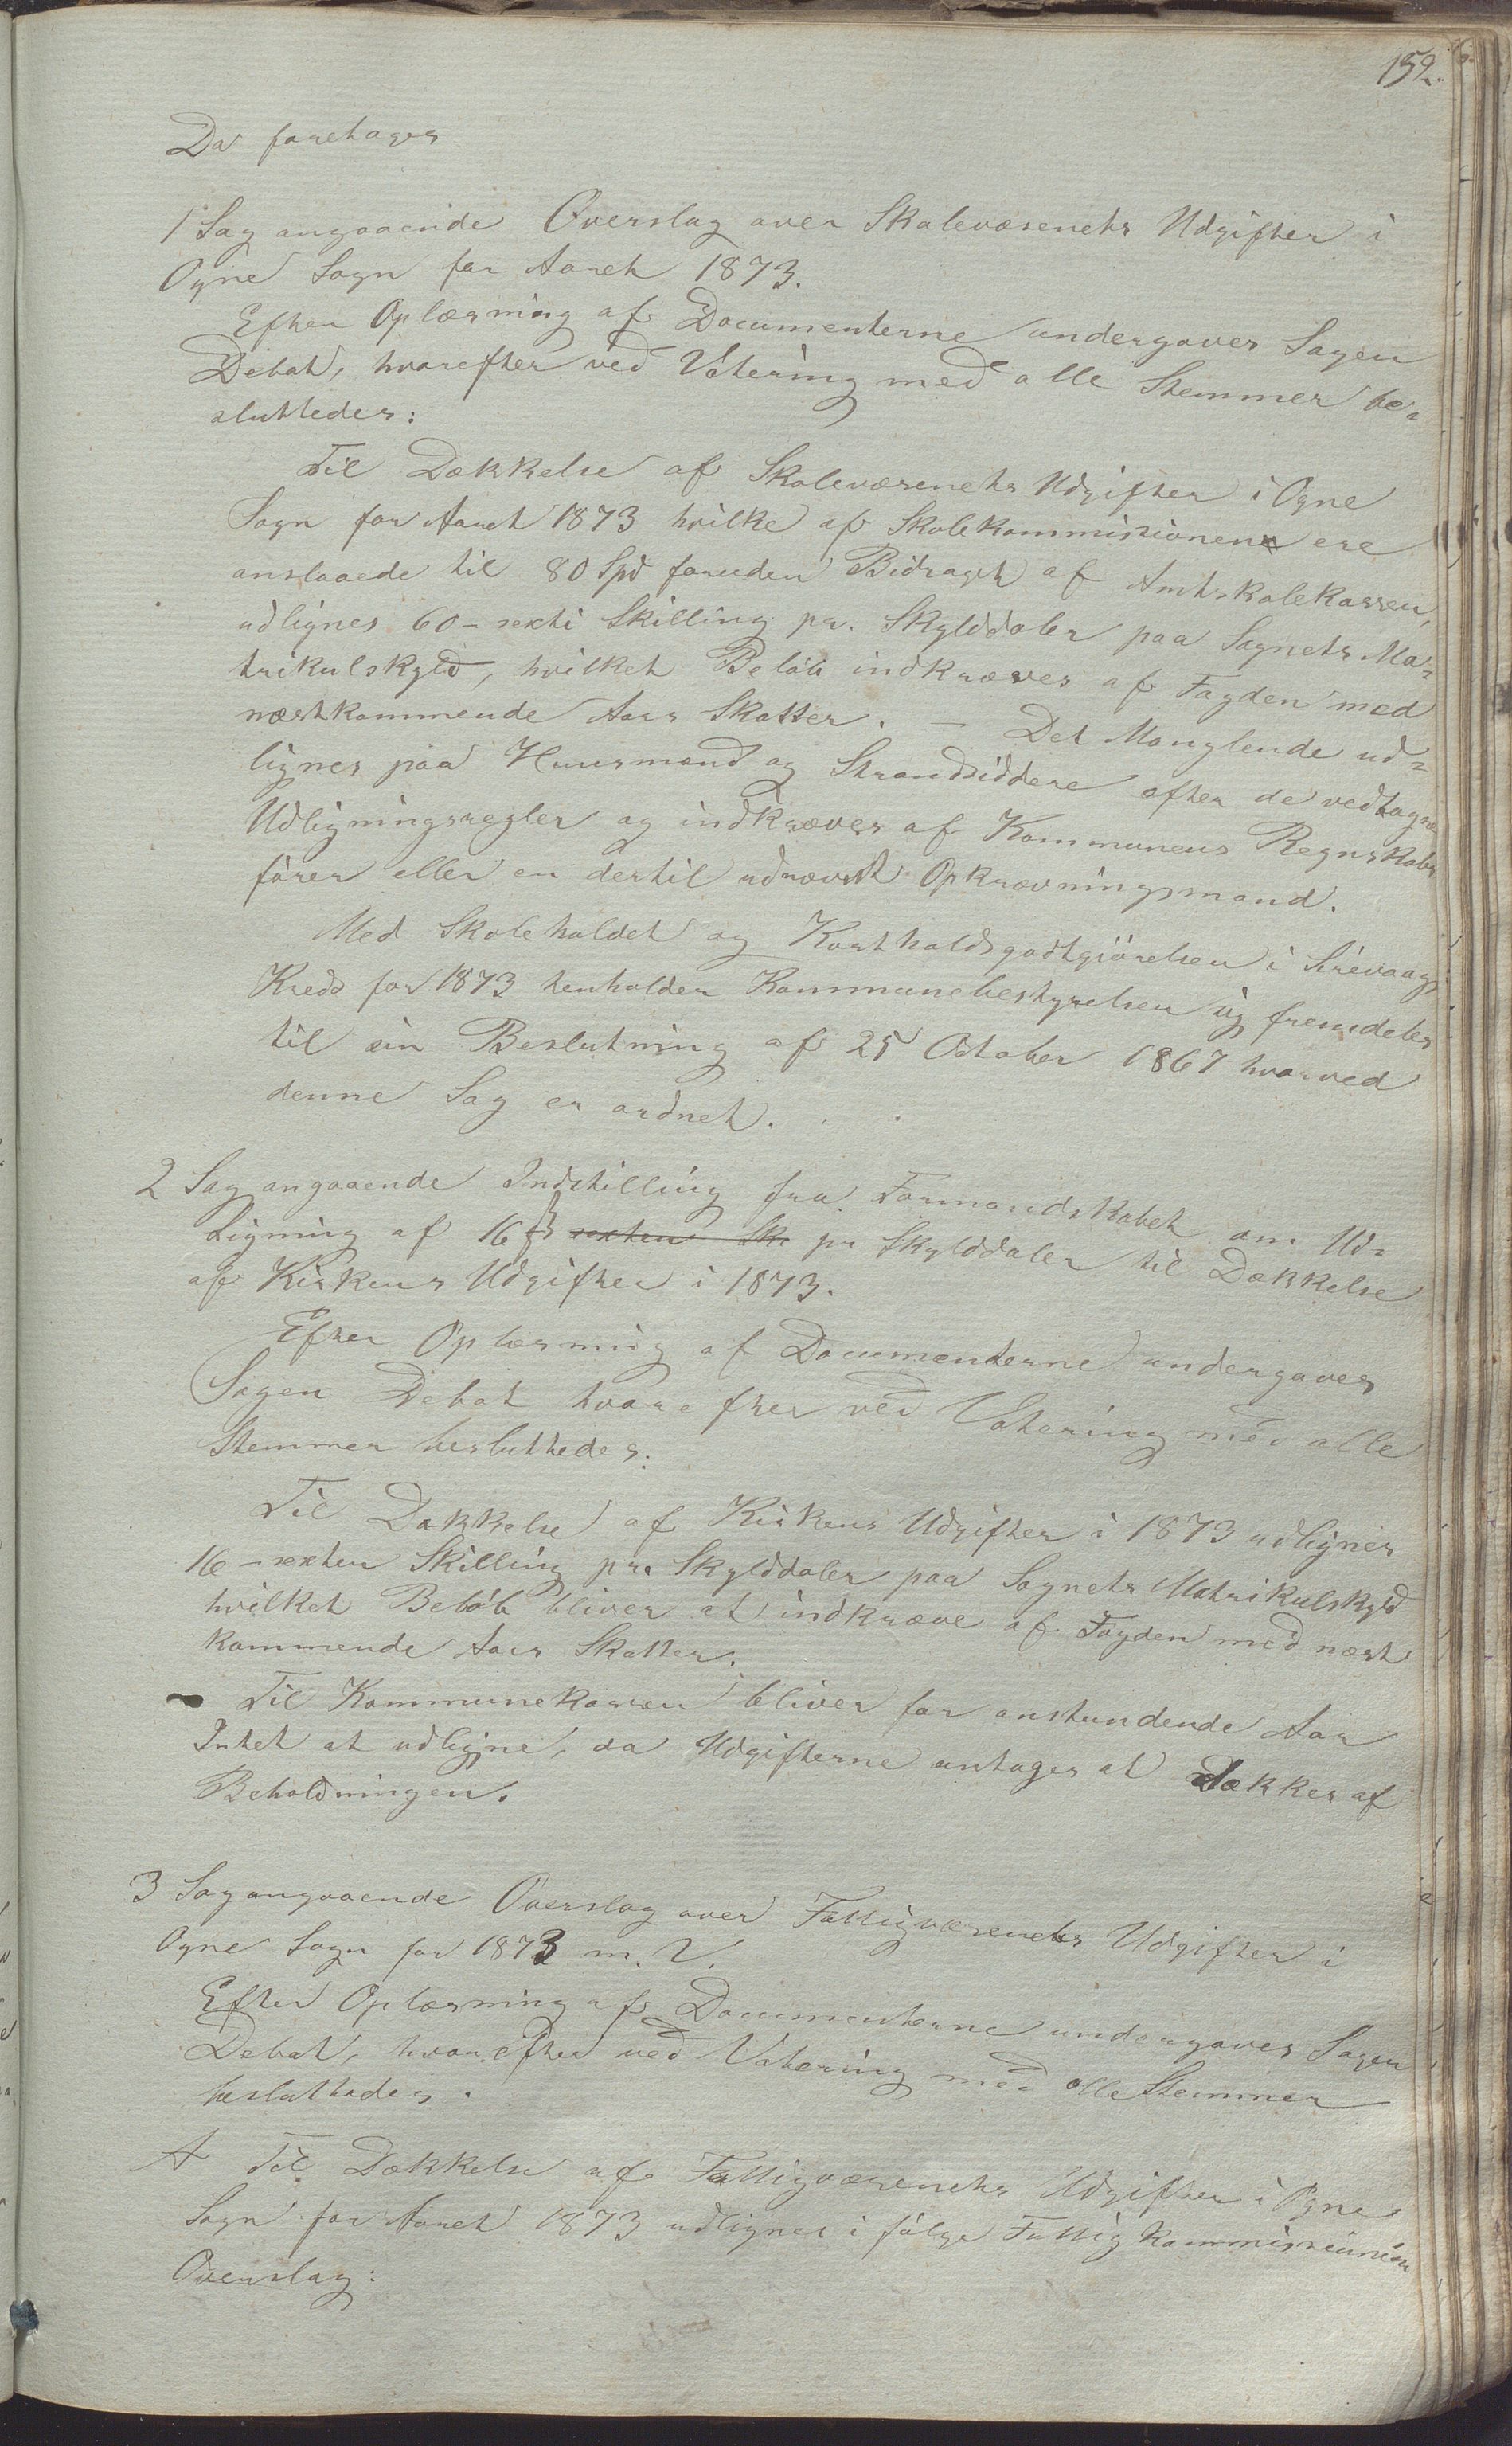 152.
Da foretoges
1 Sag angaaende Overslag over Skolevæsenets Udgifter i
Ogne Sogn for Aaret 1873.
Efter Oplæsning af Documenterne undergaves Sagen
Debat, hvorefter ved Votering med alle Stemmer be-
sluttedes:
Til Dækkelse af Skolevæsenets Udgifter i Ogne
Sogn for Aaret 1873 hvilke af Skolekommissionen ere
anslaaede til 80 Spd foruden Bidraget af Amtsskolekassen,
udlignes 60 - sexti Skilling pr. Skylddaler paa Sognets Ma-
trikulskyld, hvilket Beløb indkræves af Fogden med
næstkommende Aars Skatter. - Det Manglende ud-
lignes paa Huusmænd og Strandsiddere efter de vedtagne
Udligningsregler og indkræves af Kommunens Regnskabs
fører eller en dertil udnævnt Opkrævningsmand.
Med Skoleholdet og Kostholdsgodtgiørelsen i Sirevaag
Kreds for 1873 henholder Kommunebestyrelsen sig fremdeles
til sin Beslutning af 25 October 1867 hvorved
denne Sag er ordnet.
2 Sag angaaende Indstilling fra Formandskabet om Ud-
ligning af 16 ß sexten Sk. pr Skylddaler til Dækkelse
af Kirkens Udgifter i 1873.
Efter Oplæsning af Documenterne undergaves
Sagen Debat hvorefter ved Votering med alle
Stemmer besluttedes:
Til Dækkelse af Kirkens Udgifter i 1873 udlignes
16 - sexten Skilling pr. Skylddaler paa Sognets Matrikulskyld
hvilket Beløb bliver at indkræve af Fogden med næst
kommende Aars Skatter.
- Til Kommunekassen bliver for anstundende Aar
Intet at udligne, da Udgifterne antages at dækkes af
Beholdningen.
3 Sag angaaende Overslag over Fattigvæsenets Udgifter i
Ogne Sogn for 1873 m. V.
Efter Oplæsning af Documenterne undergaves Sagen
Debat, hvorefter ved Votering med alle Stemmer
besluttedes.
A Til Dækkelse af Fattigvæsenets Udgifter i Ogne
Sogn for Aaret 1873 udlignes i følge Fattigkommissionens
Overslag: